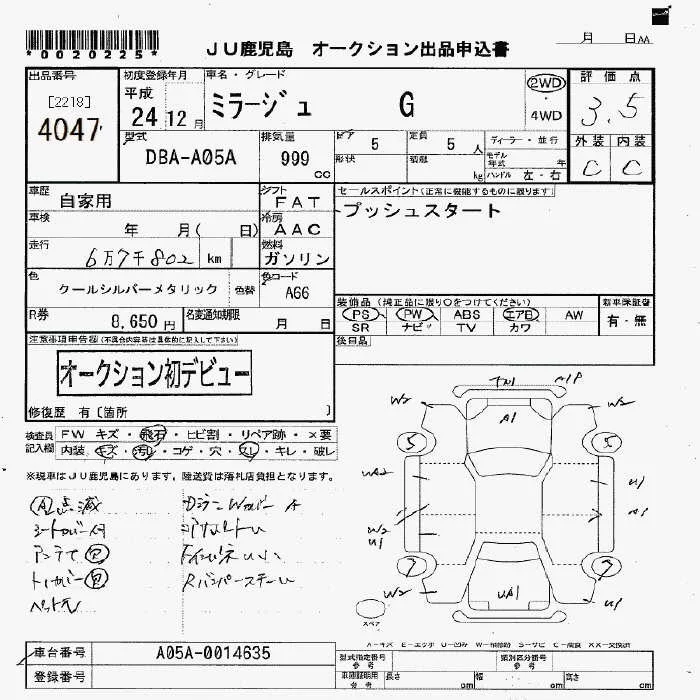 *0020225*
JU鹿児島 オークション出品申込書
月 日AA
出品番号
[2218]
4047
初度登録年月
平成
24 12 月
車名・グレード
ミラージュ G
2WD
・
4WD
評価点
3.5
外装 内装
C C
型式
DBA-A05A
排気量
999
cc
ドア
5
定員
5 人
形状
積載
kg
ディーラー・並行
モデル
年式 年
ハンドル 左・右
車歴
自家用
シフト
FAT
セールスポイント(正常に機能するものに限ります)
プッシュスタート
車検
年 月( 日)
冷房
AAC
走行
6万7千802 km
燃料
ガソリン
色
クールシルバーメタリック 色替
色コード
A66
装備品(純正品に限り○をつけてください)
PS PW ABS エアB AW
SR ナビ TV カワ
新車保証書
有・無
R券
8,650 円
名変通知期限
月 日
後日品
注意事項申告欄(不具合内容等は具体的に記入して下さい)
オークション初デビュー
修復歴 有〔箇所 〕
検査員
記入欄
FW キズ・飛石・ヒビ割・リペア跡・×要
内装、キズ・汚レ・コゲ・穴・スレ・キレ・破レ
※現車はJU鹿児島にあります。陸送費は落札店負担となります。
点滅
シートカバー付
アンテナ
トノカバー
W2
A1
W2
5
5
UA2
U1
A1
W2
U1
7
7
W2
UA1
U1
スペア
A-キズ E-エクボ U-凹み W-補修跡 S-サビ C-腐食 XX-交換済
車台番号
A05A-0014635
登録番号
型式指定番号
参考
類別区分番号
参考
車庫証明用
参考
長さ cm
幅 cm
高さ cm